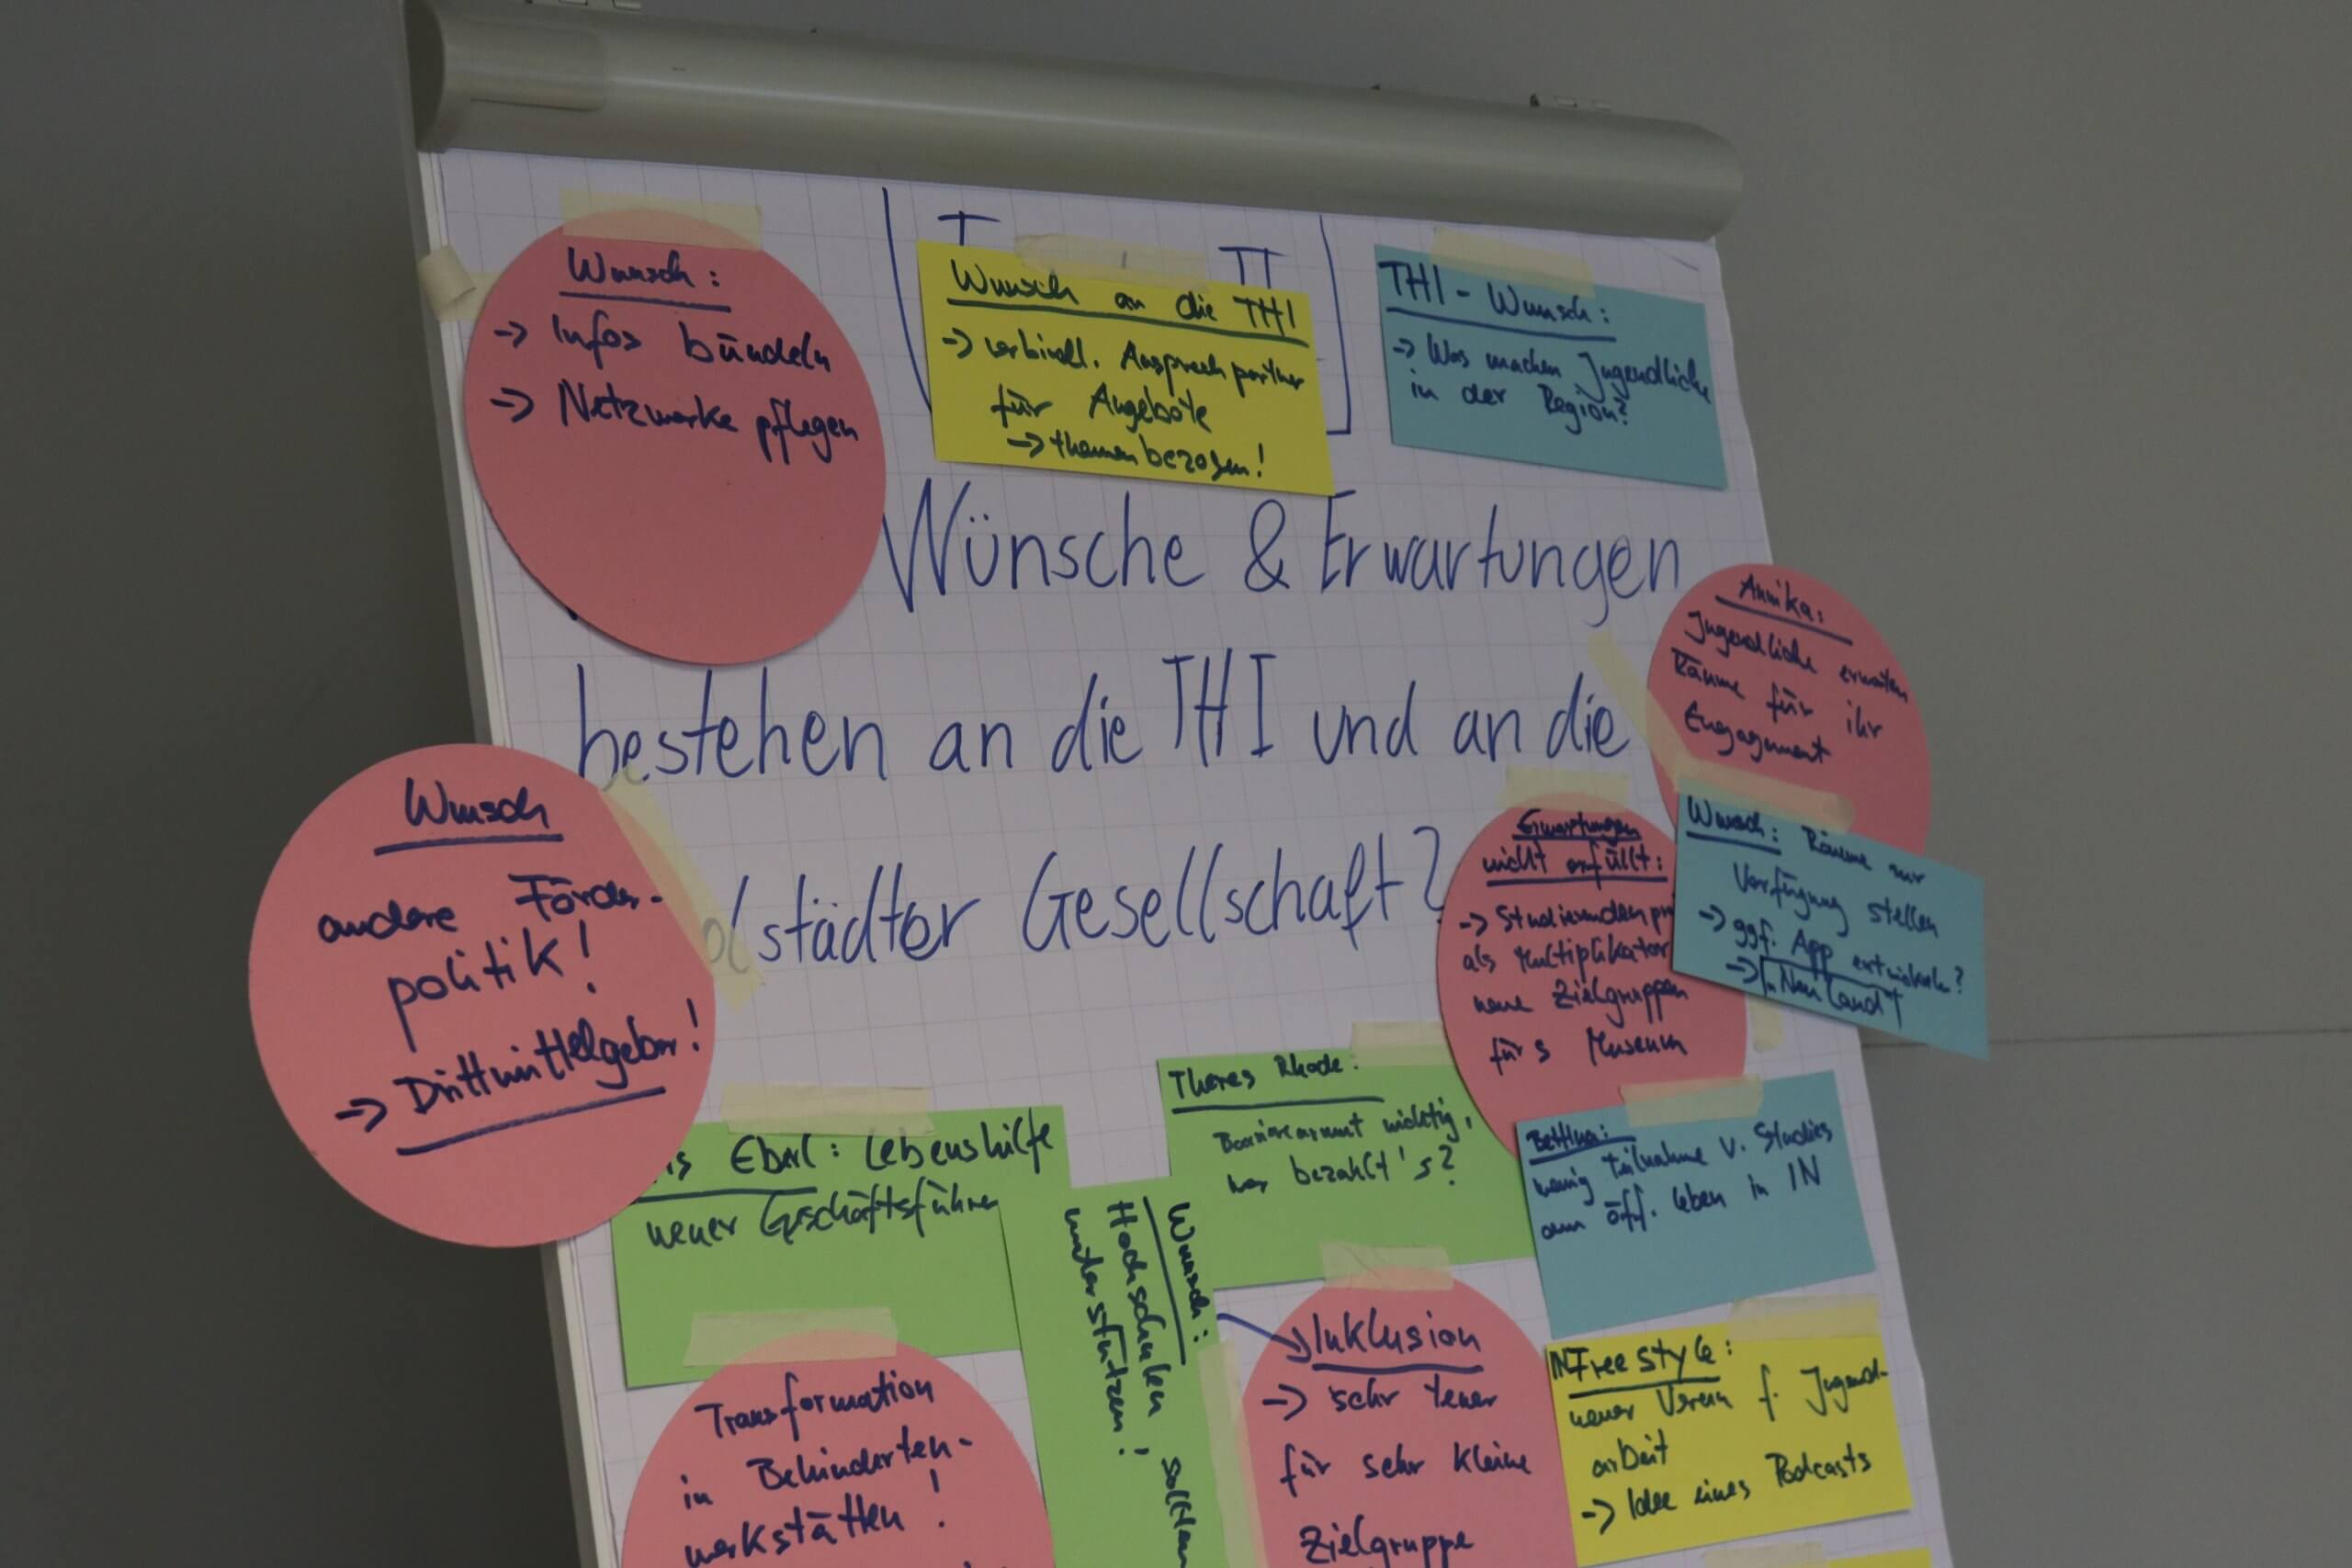 Wunsch:
-> Infos bündeln
-> Netzwerke pflegen
Wunsch an die THI
-> verbindl. Ansprechpartner
für Angebote
-> themenbezogen!
THI - Wunsch:
-> Was machen Jugendliche
in der Region?
Wünsche & Erwartungen
bestehen an die THI und an die
olstädter Gesellschaft?
Annika:
Jugendliche erwarten
Räume für ihr
Engagement
Wunsch
andere Förder-
politik!
-> Drittmittelgeber!
Erwartungen
nicht erfüllt:
-> Studierenden
als Multiplikator
neue Zielgruppen
für s Museum
Wunsch: Räume zur
Verfügung stellen
-> ggf. App entwickeln?
-> Neuland
Eberl: Lebenshilfe
neuer Geschäftsführer
Theres Rhode:
Barrierearmut wichtig,
wer bezahlt's?
Bettina:
wenig Teilnahme v. Studies
am öff. Leben in IN
Wunsch:
Hochschulen sollten
unterstützen!
Transformation
in Behinderten-
werkstätten!
Inklusion
-> sehr teuer
für sehr kleine
Zielgruppe
INFreestyle:
neuer Verein f. Jugend-
arbeit
-> Idee eines Podcasts